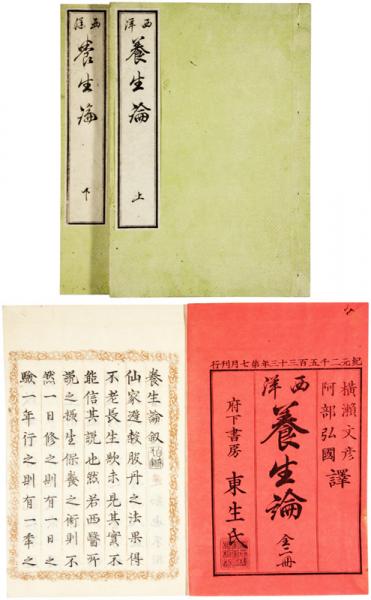 西洋
養生論
上
西洋
養生論
下
紀元二千五百三十三年第七月刊行
橫瀨文彦
阿部弘國
譯
西洋
養生論
全二冊
府下書房
東生氏
養生論叙
仙家避穀服丹之法果得
不老長生歟未見其實不
能信其説也然若西醫所
説之攝生保養之術則不
然一日修之則有一日之
驗一年行之則有一年之